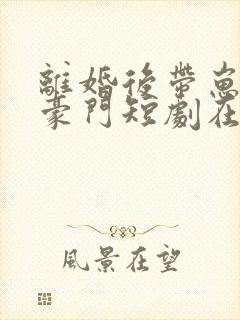 離婚後帶崽
豪門短劇在
風景在望